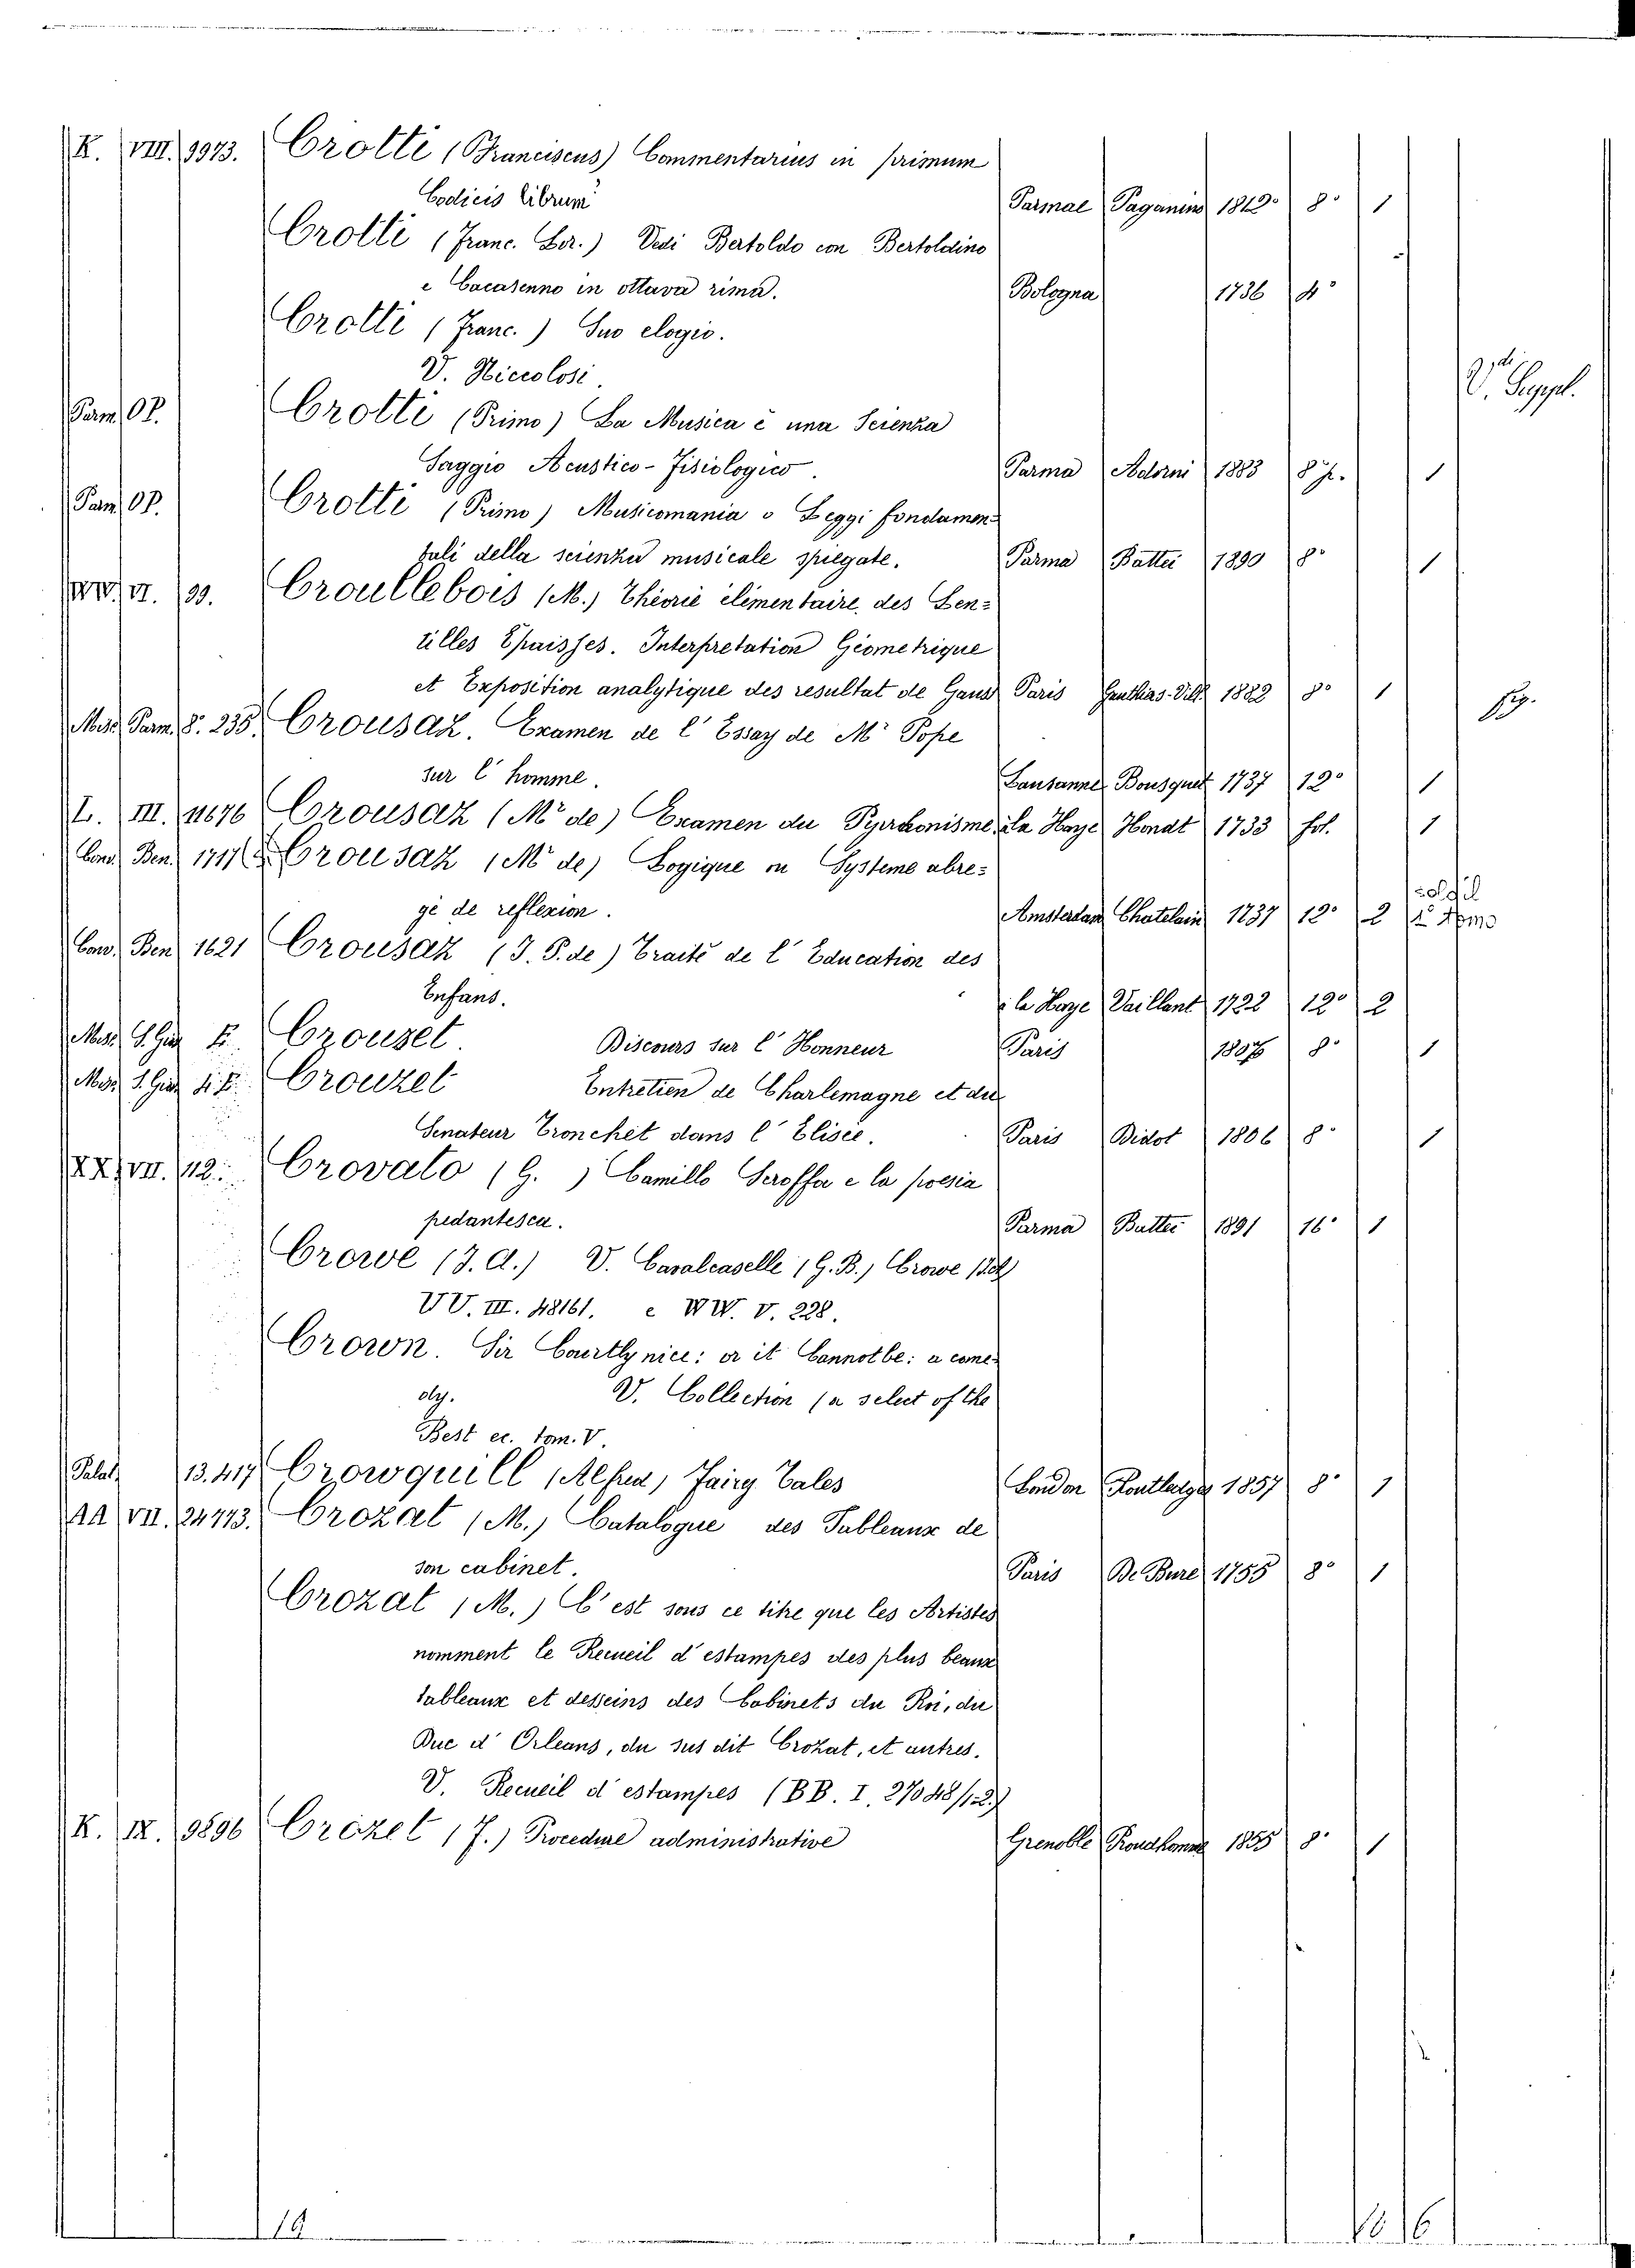 K. VIII. 9973. Crotti (Franciscus) Commentarius in primum
Codicis librum Parmae Paganino 1842 8° 1
Crotti (Franc. Lor.) Vedi Bertoldo con Bertoldino
e Cacasenno in ottava rima. Bologna 1736 4°
Crotti (Franc.) Suo elogio.
V. Niccolosi.
V. Suppl.
Parm. OP. Crotti (Primo) La Musica è una Scienza
Saggio Acustico-Fisiologico. Parma Adorni 1883 8° 1
Parm. OP. Crotti (Primo) Musicomania o Leggi fondamen-
tali della scienza musicale spiegate. Parma Battei 1890 8° 1
WW. VI. 99. Croullebois (M.) Théorie élimentaire des Len-
tilles Epaisses. Interpretation Géometrique
et Exposition analytique des resultat de Gauss Paris Gauthiers-Vill. 1882 8° 1 fig.
Misc. Parm. 8. 235. Crousaz. Examen de l'Essay de Mr Pope
sur l'homme. Lausanne Bousquet 1737 12° 1
L. III. 11676 Crousaz (Mr de) Examen du Pyrrhonisme à la Haye Hondt 1733 fol. 1
Cons. Ben. 1717 Crousaz (Mr de) Logique ou Systeme abre-
gé de reflexion. Amsterdam Chatelain 1737 12° 2
Cons. Ben. 1621 Crousaz (J. P. de) Traité de l'Education des
Enfans. à la Haye Vaillant 1722 12° 2
Crouzet. Discours sur l'Honneur Paris 1806 8° 1
Crouzet Entretien de Charlemagne et du
Senateur Tronchet dans l'Elisée. Paris Didot 1806 8° 1
XX. VII. 112. Crovato (G.) Camillo Scroffa e la poesia
pedantesca. Parma Battei 1891 16° 1
Crowe (J. A.) V. Cavalcaselle (G. B.) Crowe
VV. III. 48161. e WW. V. 228.
Crown. Sir Courtly nice: or it Cannot be: a come-
dy. V. Collection (a select of the
Best ec. tom. V.
Palat. 13.417 Crowquill (Alfred) Fairy Tales London Routledge 1857 8° 1
AA VII. 24773. Crozat (M.) Catalogue des Tableaux de
son cabinet. Paris De Bure 1755 8° 1
Crozat (M.) C'est sous ce titre que les Artistes
nomment le Recueil d'estampes des plus beaux
tableaux et desseins des Cabinets du Roi, du
Duc d'Orleans, du sus dit Crozat, et autres.
V. Recueil d'estampes (BB. I. 27048/1-2.)
K. IX. 9896 Crozet (F.) Procedure administrative Grenoble Prudhomme 1855 8° 1
19 16